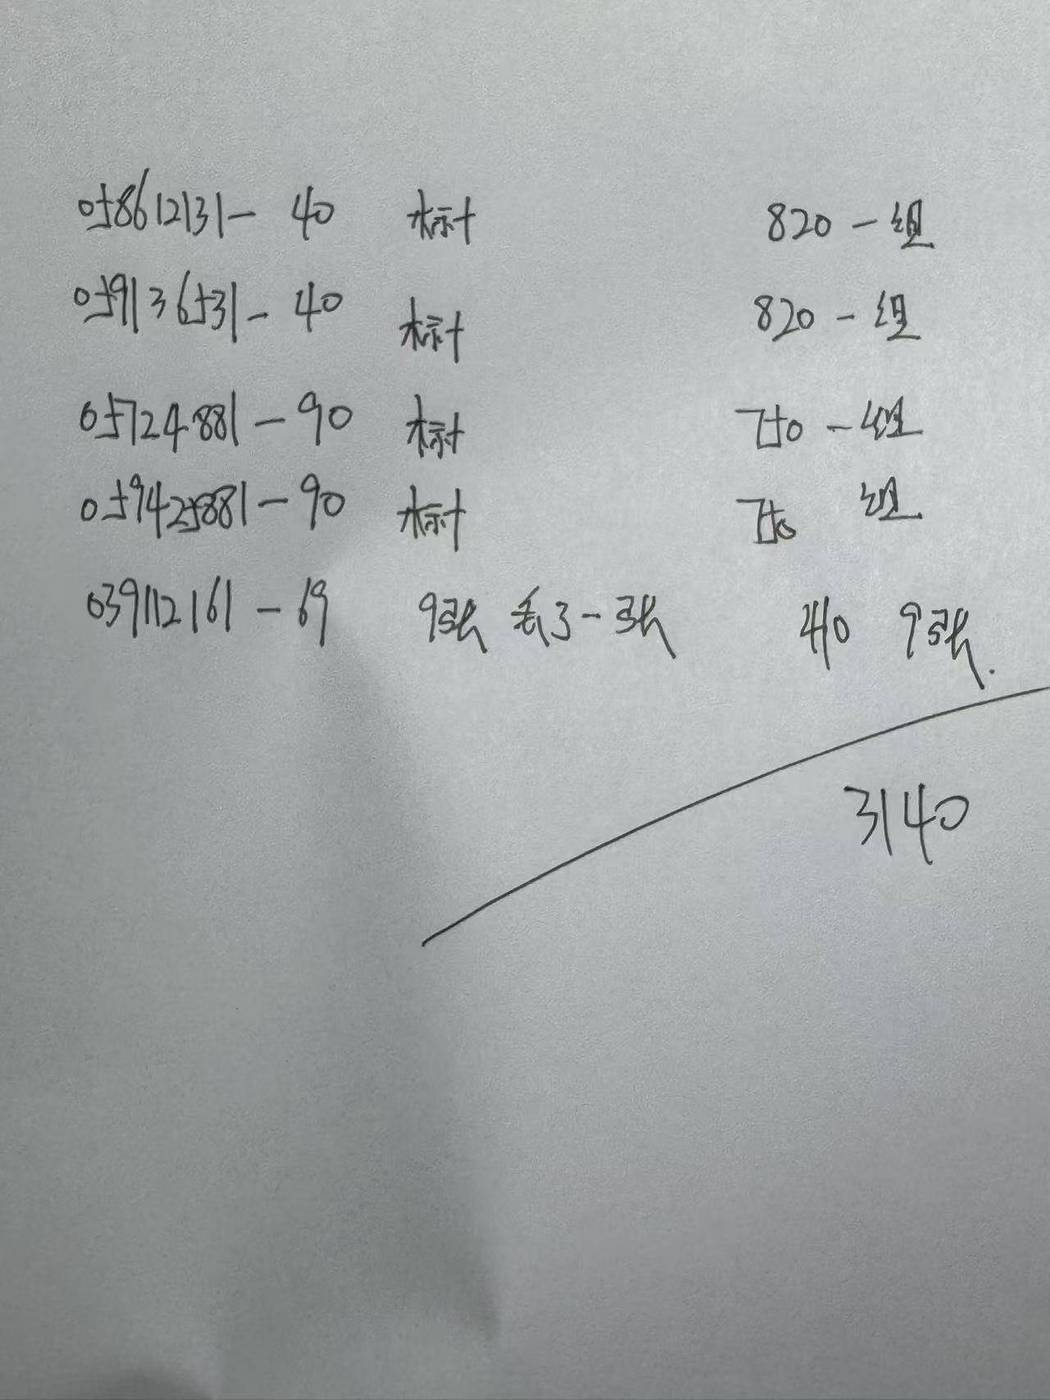 058612131-40 标十 820一组
059136531-40 标十 820一组
05724881-90 标十 750一组
059425881-90 标十 750 组
039112161-69 9张 丢了一张 410 9张.
3140